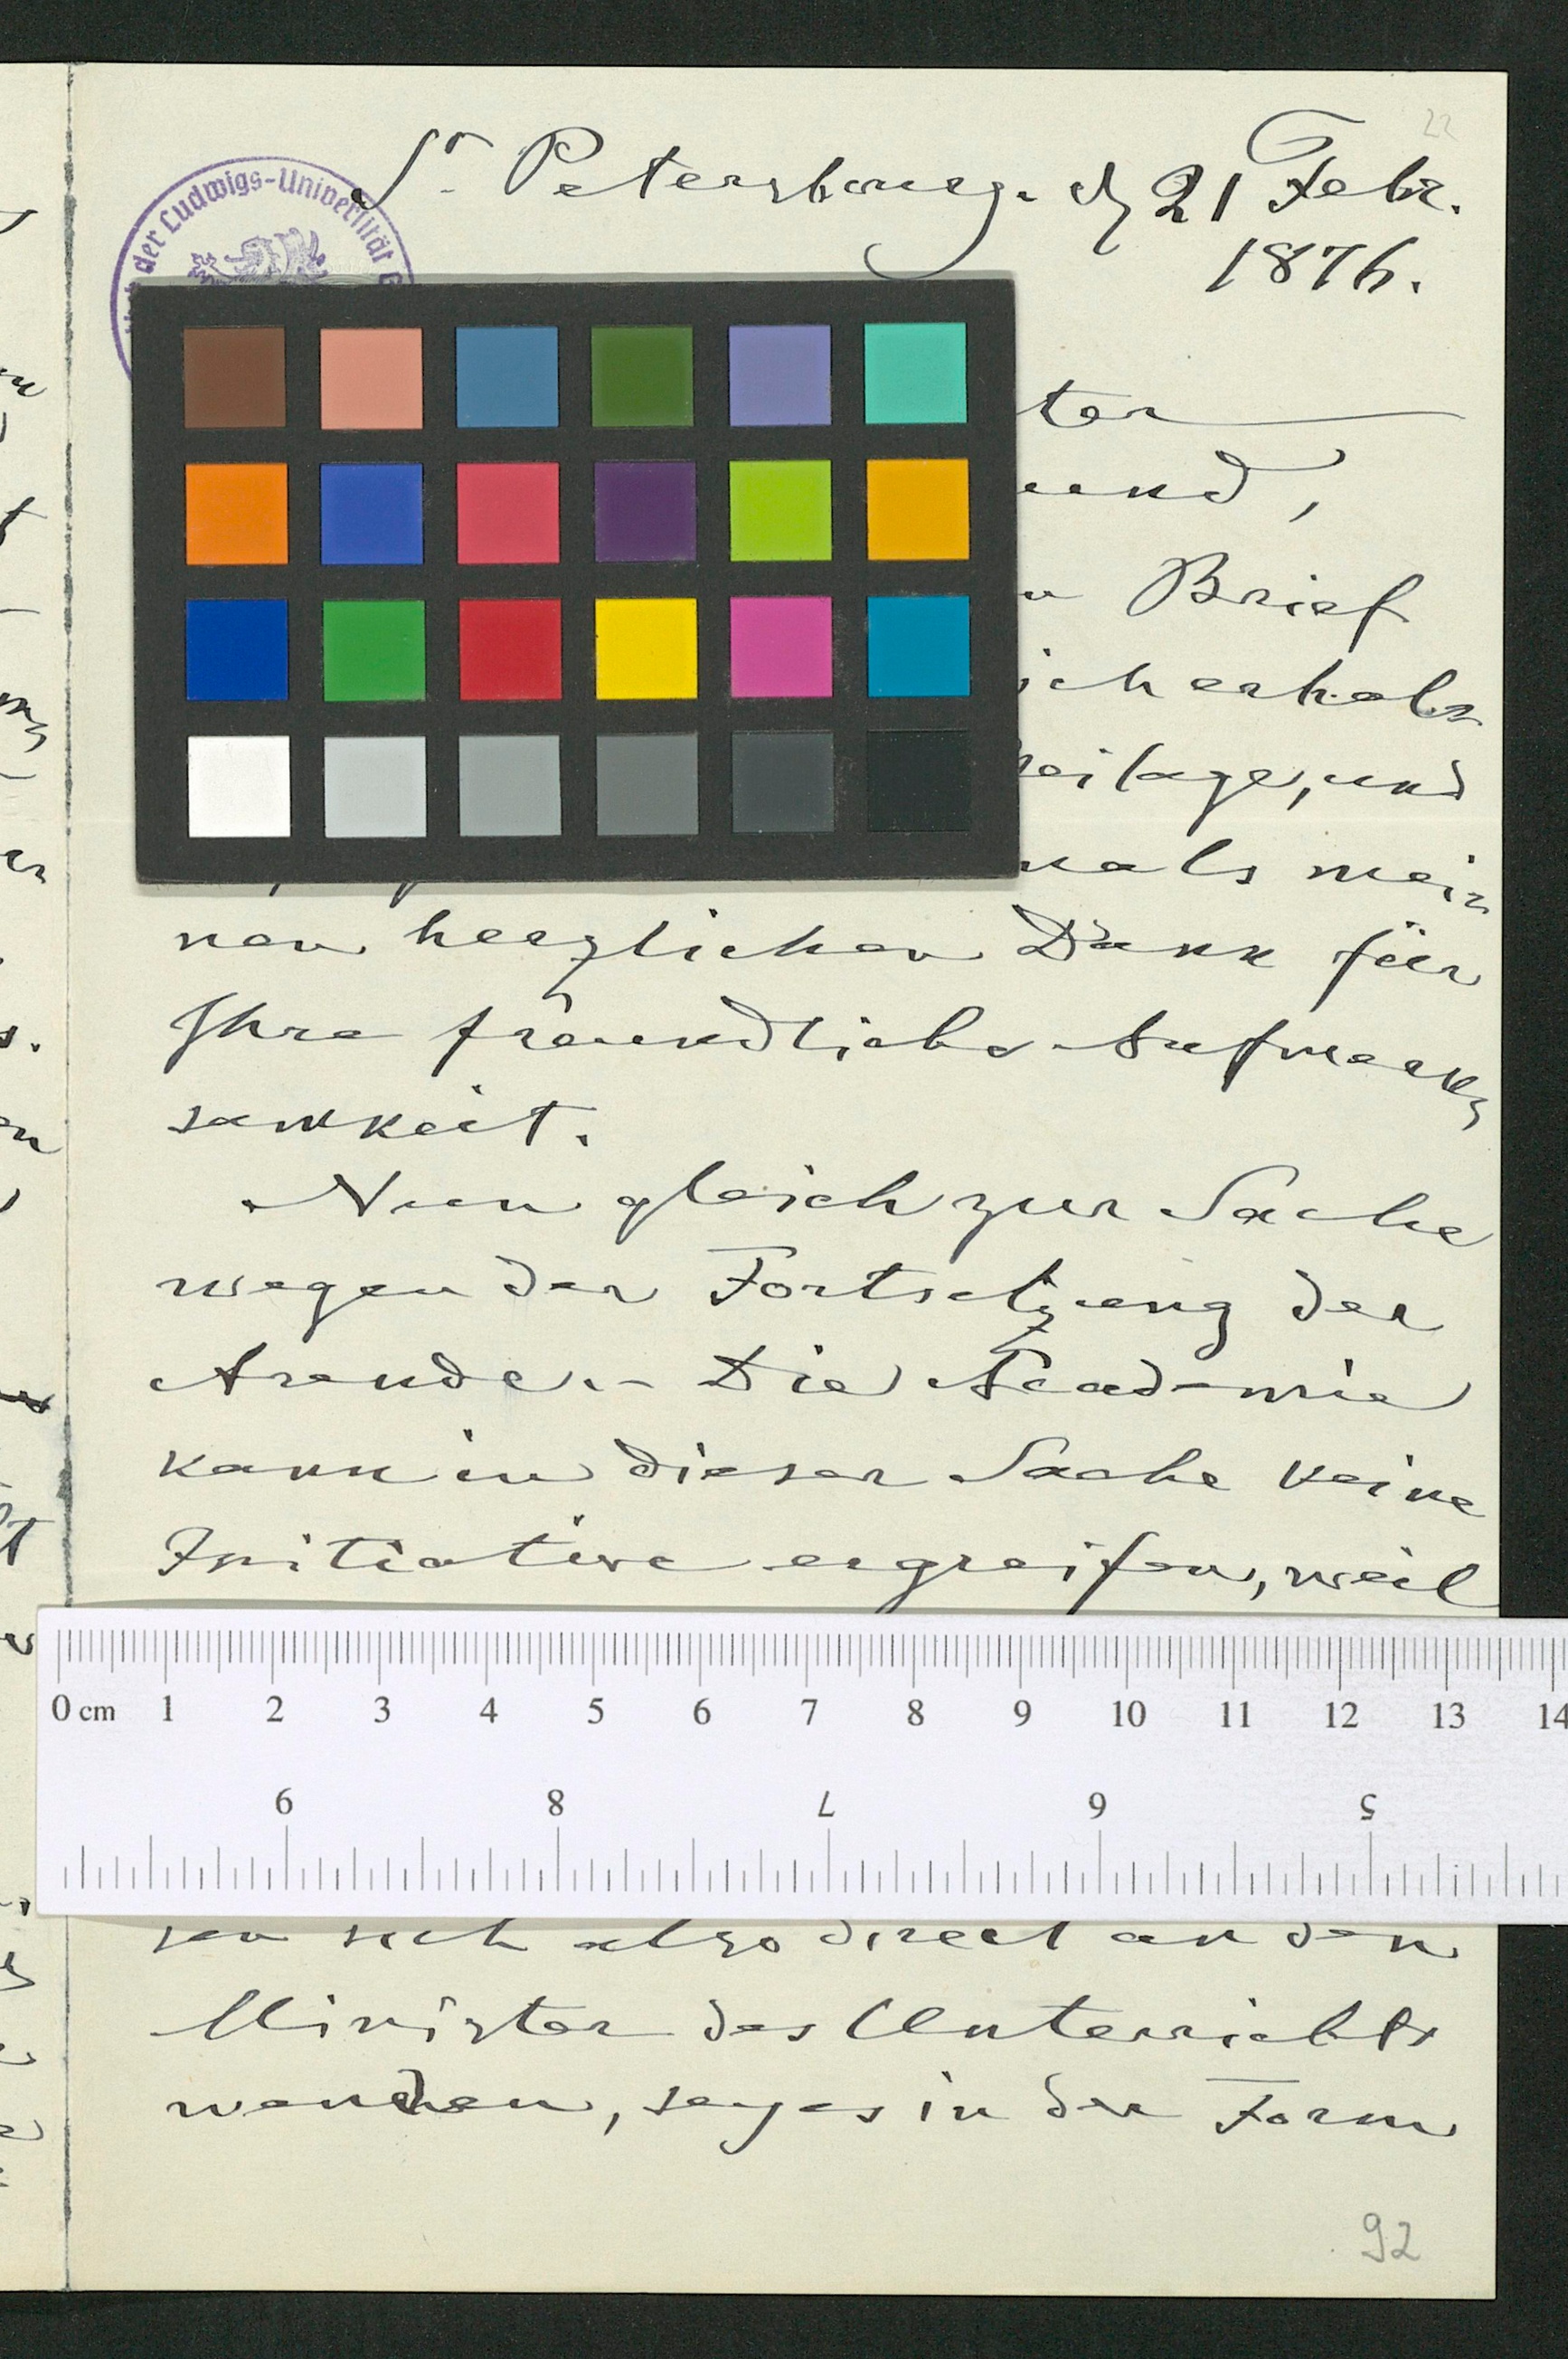 22
St. Petersbourg. d 21 Febr.
1876.
der Ludwigs-Universität
ter
und,
Brief
ich erhalt
eilage, und
mals mei-
nen herzlichen Dank für
Ihre freundliche Aufmerk-
samkeit.
Nun gleich zur Sache
wegen der Fortsetzung der
Arende. – Die Academie
kann in dieser Sache keine
Initiative ergreifen, weil
0 cm 1 2 3 4 5 6 7 8 9 10 11 12 13 14
9 8 7 6 5
sen sich also direct an den
Minister des Unterrichts
wenden, sey es in der Form
92